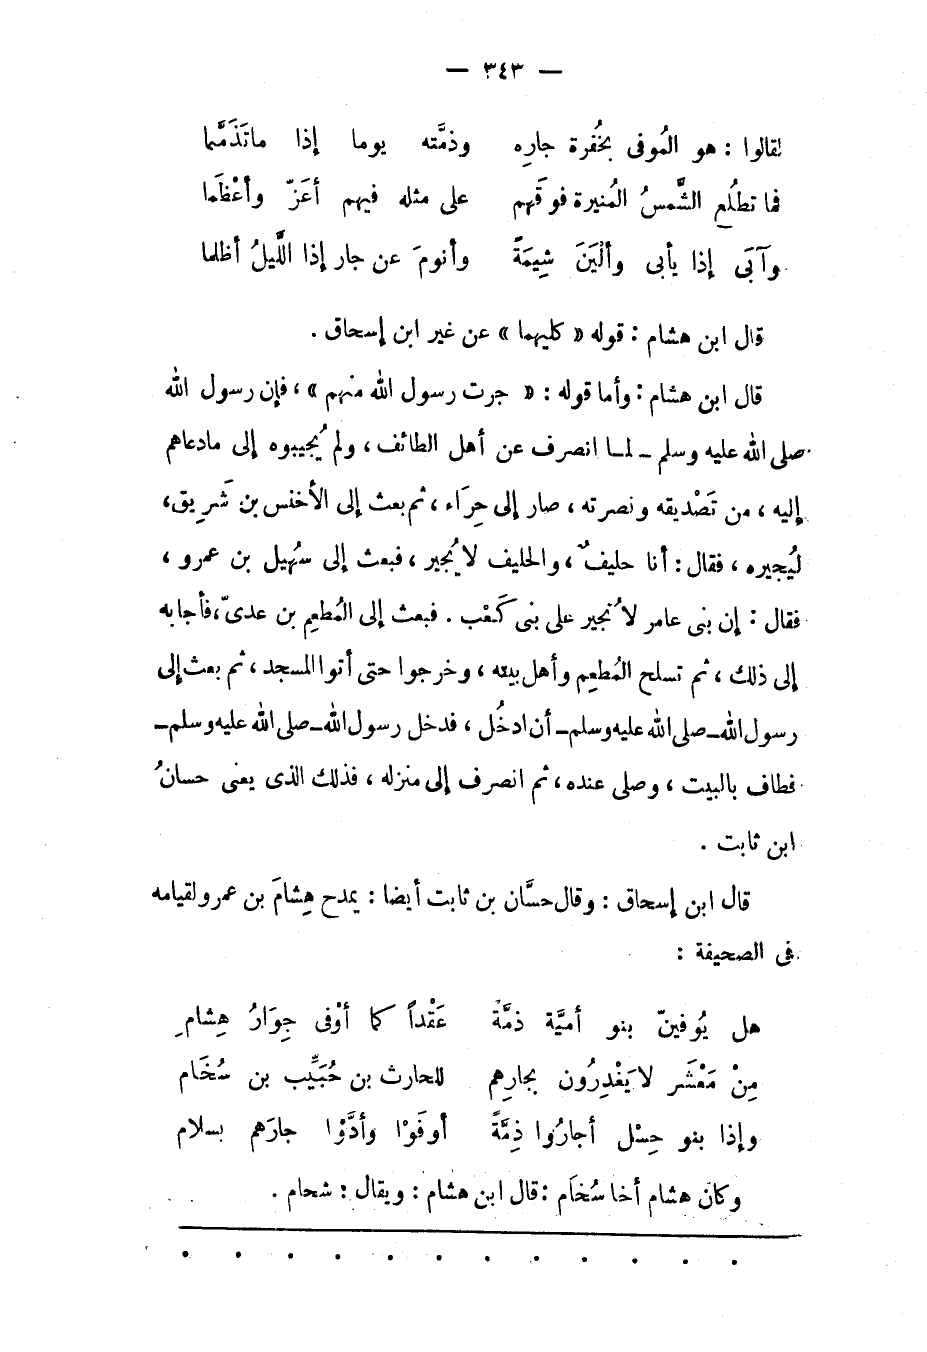 — ٣٤٣ —
لقالوا : هو المُوفى بخُفرة جارِه وذمَّته يوما إذا ماتَذَمَّما
فما تطلُع الشَّمسُ المُنيرة فوقَهم على مثله فيهم أعَزّ وأعْظَما
وآبَى إذا يأبى وألْيَنَ شِيمَةً وأنومَ عن جار إذا اللَّيلُ أظلما
قال ابن هشام : قوله « كليهما » عن غير ابن إسحاق .
قال ابن هشام : وأما قوله : « جرت رسول الله منهم » ، فإن رسول الله
صلى الله عليه وسلم – لمـا انصرف عن أهل الطائف ، ولم يُجيبوه إلى مادعاهم
إليه ، من تَصْديقه ونصرته ، صار إلى حِرَاء ، ثم بعث إلى الأخنس بن شَريق ،
ليُجيره ، فقال : أنا حليفٌ ، والحليف لا يُجير ، فبعث إلى سُهيل بن عمرو ،
فقال : إن بنى عامر لا تُجير على بنى كَعْب . فبعث إلى المُطعِم بن عدىّ ، فأجابه
إلى ذلك ، ثم تسلح المُطعِم وأهل بيته ، وخرجوا حتى أتوا المسجد ، ثم بعث إلى
رسول الله – صلى الله عليه وسلم – أن ادخُل ، فدخل رسول الله – صلى الله عليه وسلم –
فطاف بالبيت ، وصلى عنده ، ثم انصرف إلى منزله ، فذلك الذى يعنى حسانُ
ابن ثابت .
قال ابن إسحاق : وقال حسَّان بن ثابت أيضا : يمدح هِشامَ بن عمرو لقيامه
فى الصحيفة :
هل يُوفينّ بنو أميَّة ذمَّةً عَقْداً كما أوْفى جِوَارُ هِشامِ
مِنْ مَعْشَر لا يَغْدِرُون بجارِهم للحارث بن حُبَيِّب بن سُخَام
وإذا بنو حِسْل أجارُوا ذِمَّةً أوفَوْا وأدَّوْا جارَهم بسلام
وكان هشام أخا سُخَام : قال ابن هشام : ويقال : شحام .